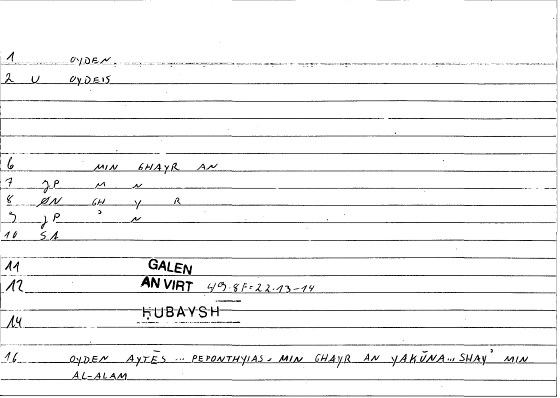 1 OYDEN.
2 U OYDEIS
6 MIN GHAYR AN
7 JP M N
8 ØN GH Y R
9 JP ʾ N
10 SA
11 GALEN
12 AN VIRT 49.8F=22.13-14
HUBAYSH
14
16 OYDEN AYTĒS ... PEPONTHYIAS = MIN GHAYR AN YAKŪNA ... SHAYʾ MIN
AL-ALAM